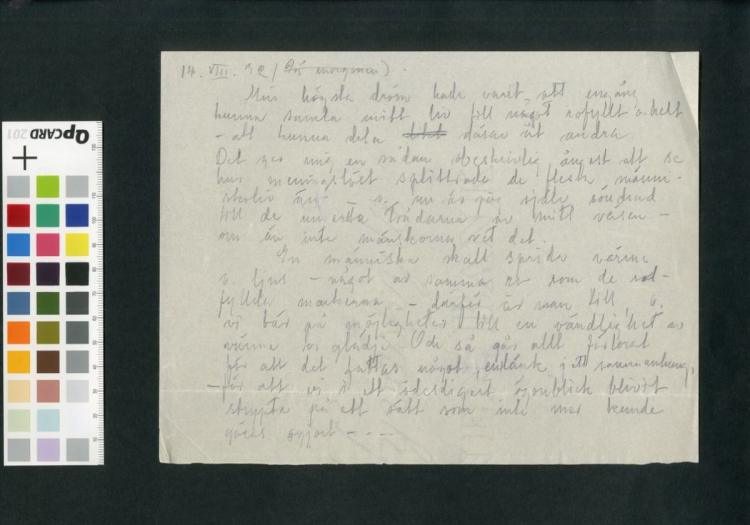 14. VIII. 32 (På morgonen).
Min högsta dröm hade varit, att engång
kunna samla mitt liv till något rofyllt o. helt
– att kunna dela dåsar åt andra
Det ger mig en sådan obeskrivlig ångest att se
hur meningslöst splittrade de flesta männi-
skoliv äro – o. nu är jag själv söndrad
till de innersta trådarna av mitt väsen –
om än inte människorna vet det.
En människa skall sprida värme
o. ljus – något av samma art som de
fyllda markerna – därför är man till, o.
vi bär på möjligheter till en oändlighet av
värme o. glädje. Och så går allt förlorat
för att det fattas något enstänk i ett sammanhang,
– för att vi i ett ödesdigert ögonblick blivit
strypta på ett sätt som inte mer kunde
göras ogjort – – – –
QPCARD 201